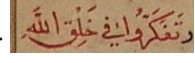 . وتَفَكَّرُوا فِي خَلْقِ اللَّهِ